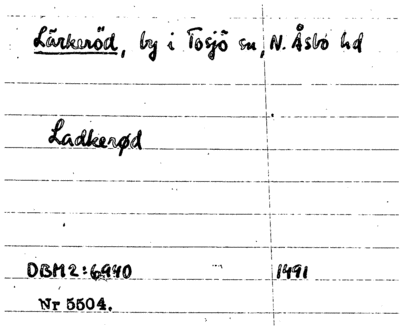 Lärkeröd, by i Tosjö sn, N. Åsbo hd
Ladkerød
DBM2:6940 1491
Nr 5504.